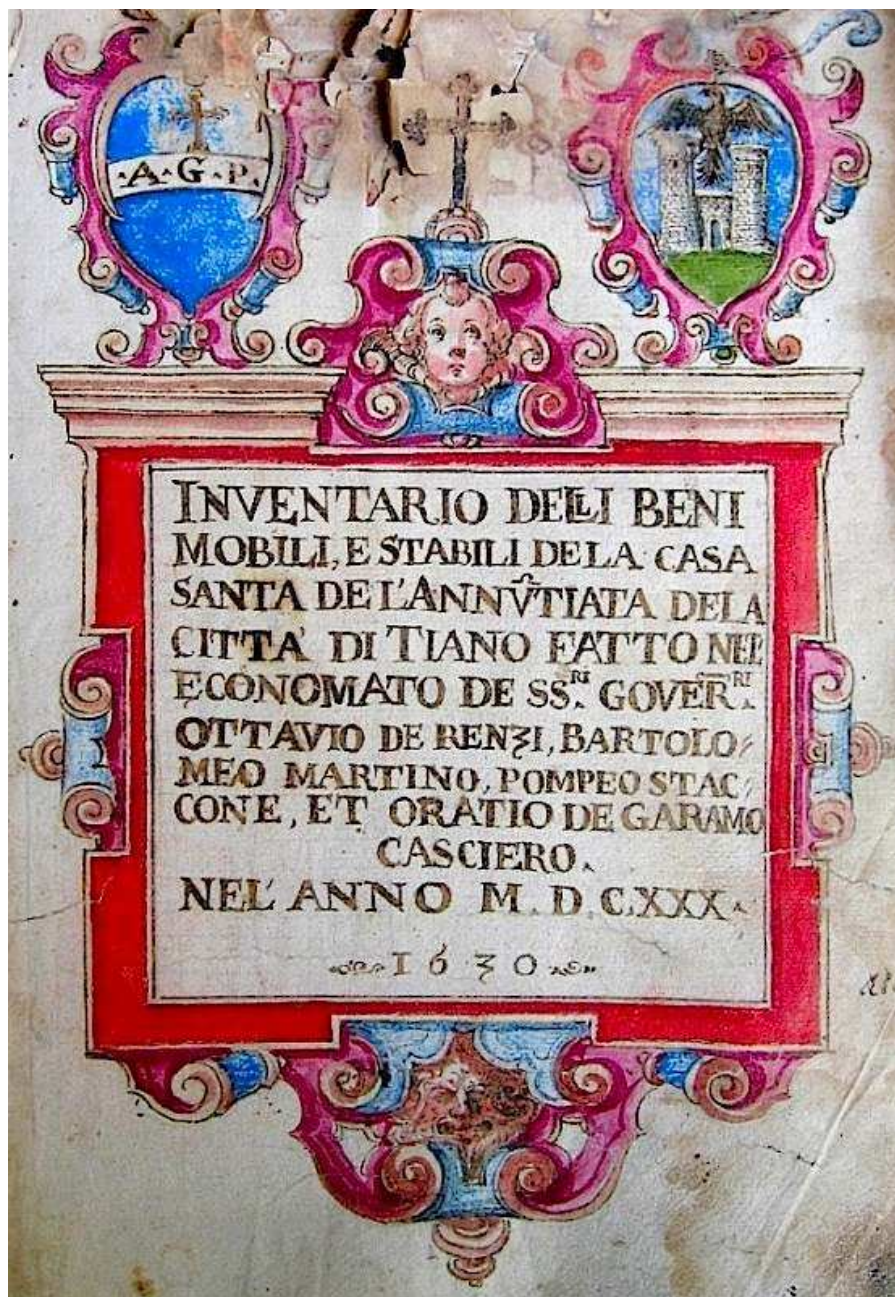 ·A·G·P·
INVENTARIO DELLI BENI
MOBILI, E STABILI DE LA CASA
SANTA DE L'ANNŨTIATA DE LA
CITTA' DI TIANO FATTO NEL
ECONOMATO DE SS.RI GOVER.RI
OTTAVIO DE RENZI, BARTOLO=
MEO MARTINO, POMPEO STAC=
CONE, ET ORATIO DE GARAMO
CASCIERO.
NEL' ANNO M. D. C.XXX.
1630